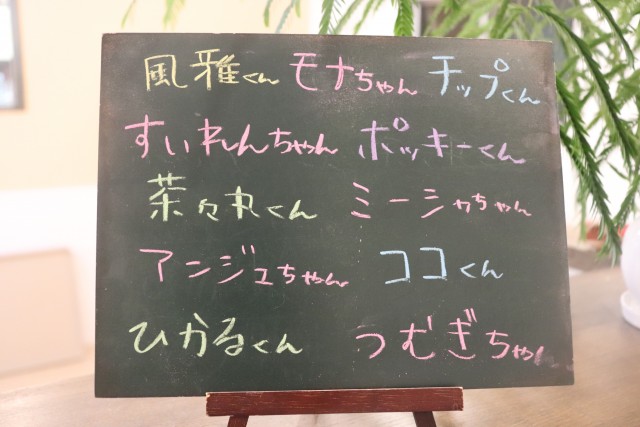 風雅くん モナちゃん チップくん
すいれんちゃん ポッキーくん
茶々丸くん ミーシャちゃん
アンジュちゃん ココくん
ひかるくん つむぎちゃん